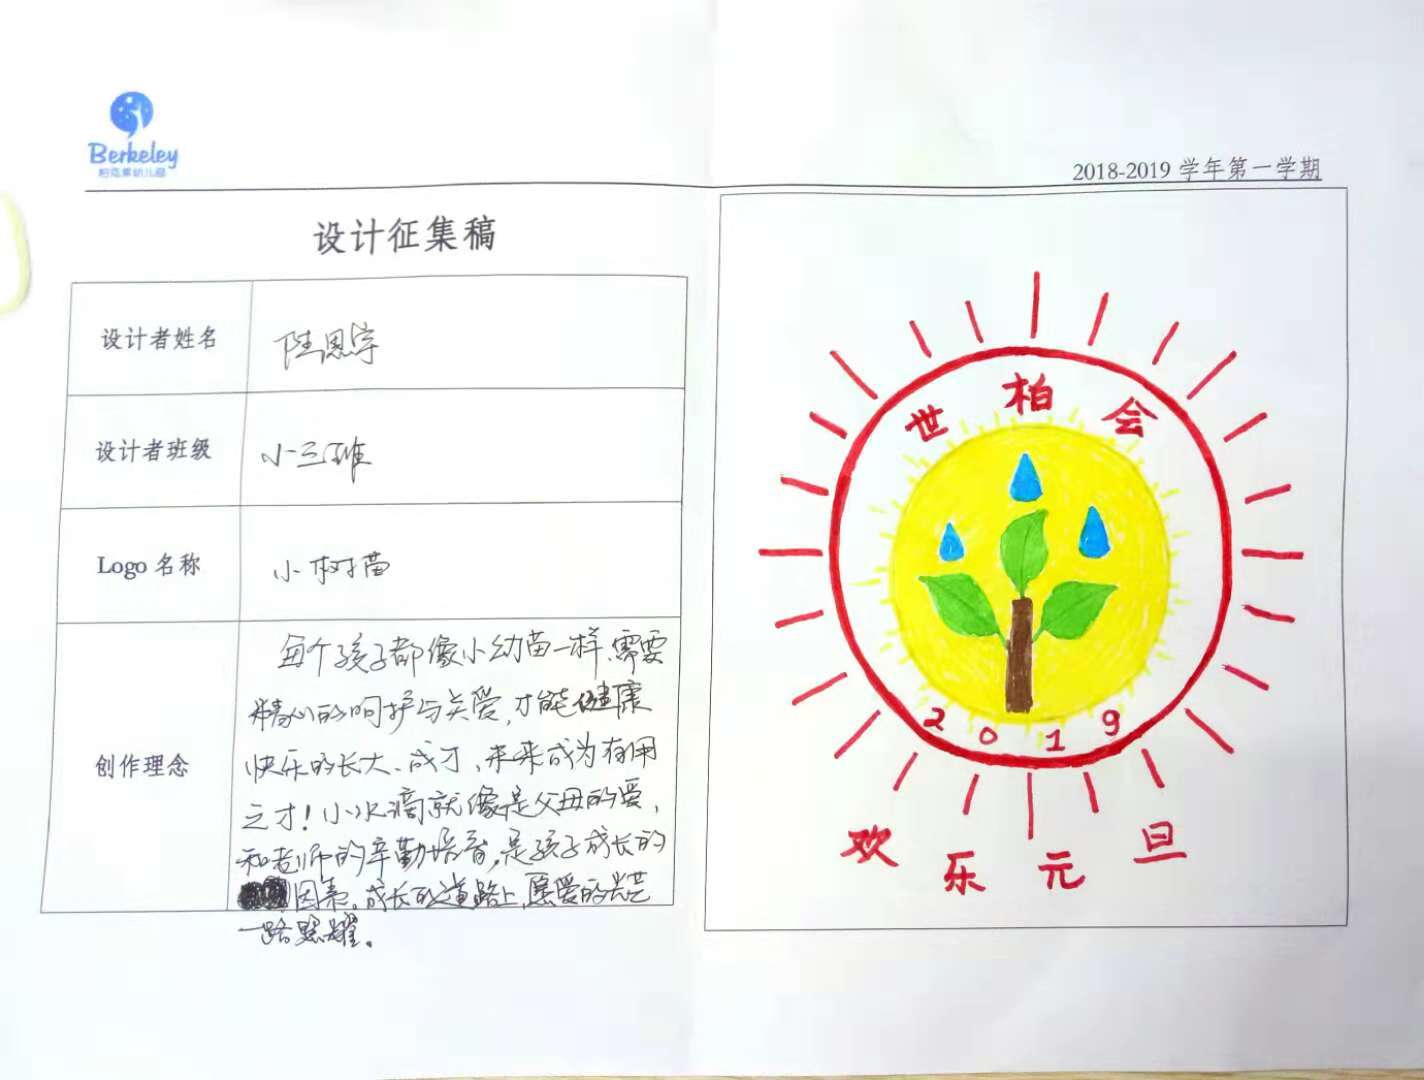 Berkeley
柏克莱幼儿园
2018-2019 学年第一学期
设计征集稿
设计者姓名
陆恩宇
设计者班级
小三班
Logo 名称
小树苗
创作理念
每个孩子都像小幼苗一样、需要
精心的呵护与关爱,才能健康
快乐的长大、成才、未来成为有用
之才!小水滴就像是父母的爱,
和老师的辛勤培育,是孩子成长的
因素。成长的道路上,愿爱的光芒
一路照耀。
世柏会
2019
欢乐元旦